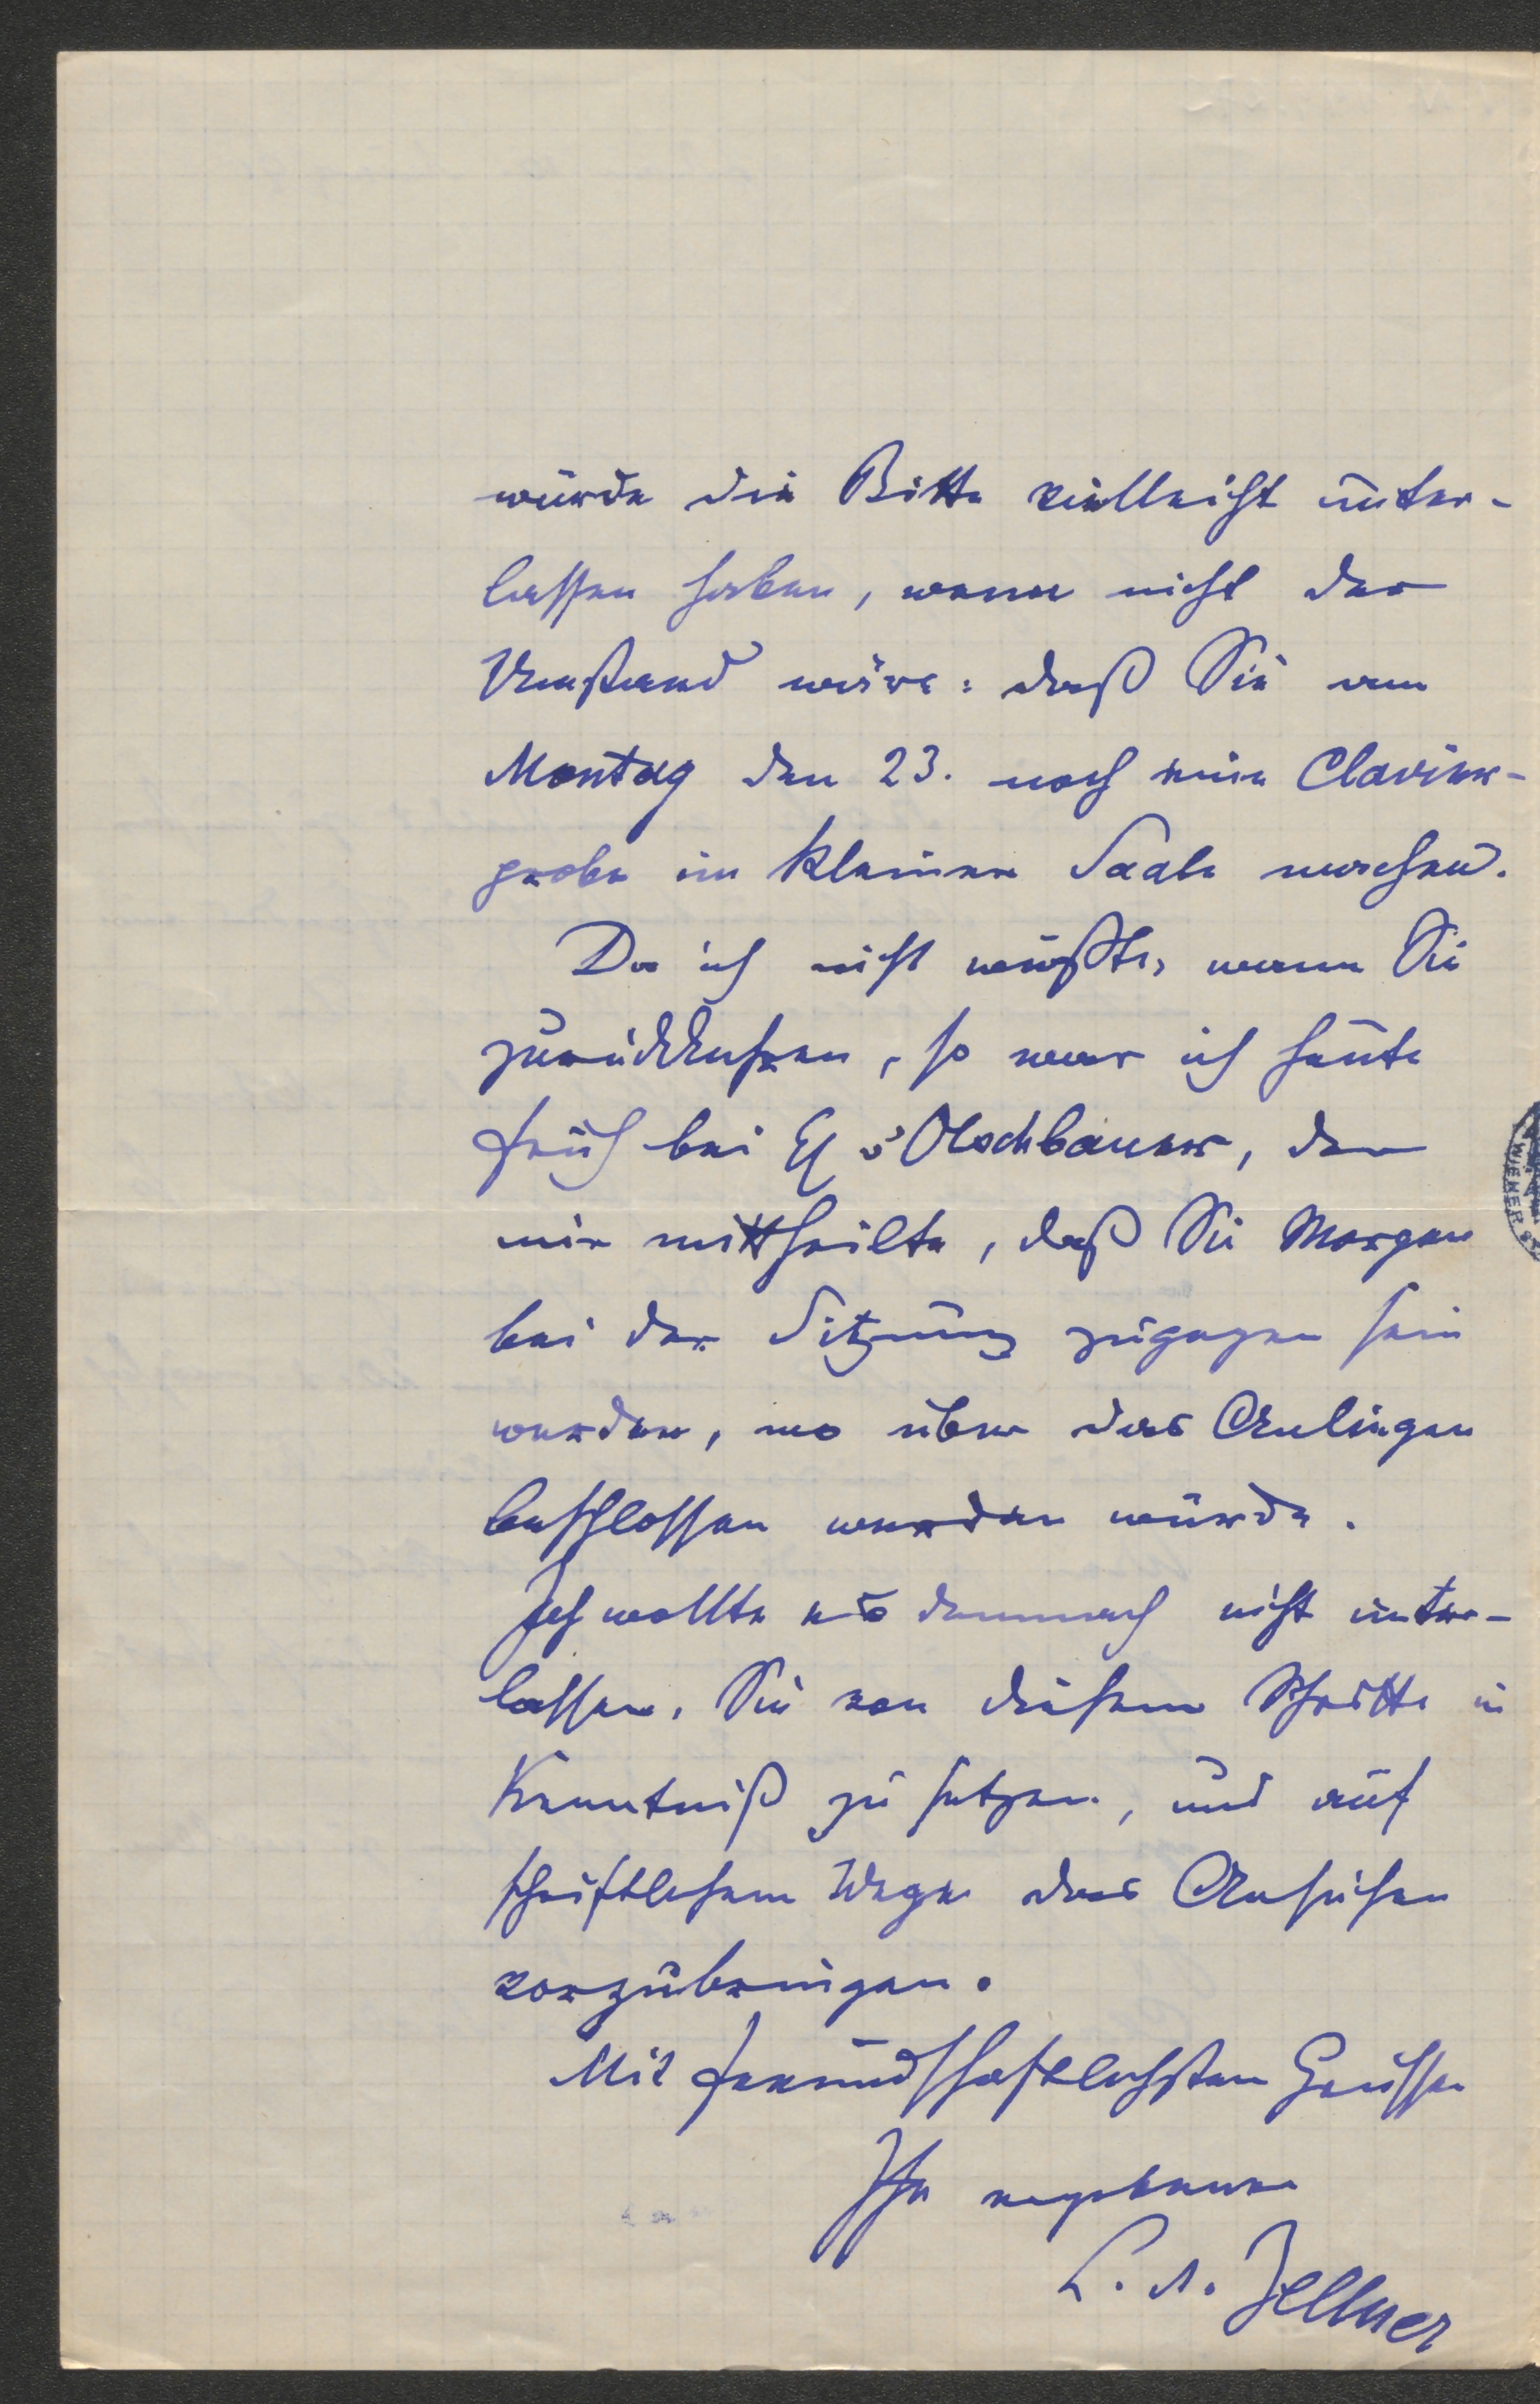 würde die Bitte vielleicht unter-
lassen haben, wenn nicht der
Umstand wäre: daß Sie am
Montag den 23. noch eine Clavier-
probe im kleinen Saale machen.
Da ich nicht wußte, wann Sie
zurückkehren, so war ich heute
früh bei v Olschbauer, der
mir mittheilte, daß Sie Morgen
bei der Sitzung zugegen sein
werden, wo über das Anliegen
beschlossen werden würde.
Ich wollte es demnach nicht unter-
lassen, Sie von diesem Schritte in
Kenntniß zu setzen, und auf
schriftlichem Wege das Ansuchen
vorzubringen.
Mit freundschaftlichsten Grüssen
Ihr ergebener
L. A. Zellner
WIENER